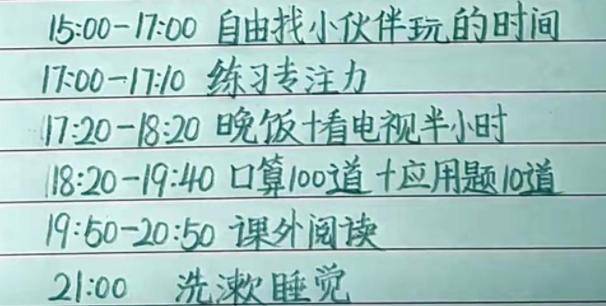 15:00-17:00 自由找小伙伴玩的时间
17:00-17:10 练习专注力
17:20-18:20 晚饭+看电视半小时
18:20-19:40 口算100道+应用题10道
19:50-20:50 课外阅读
21:00 洗漱睡觉